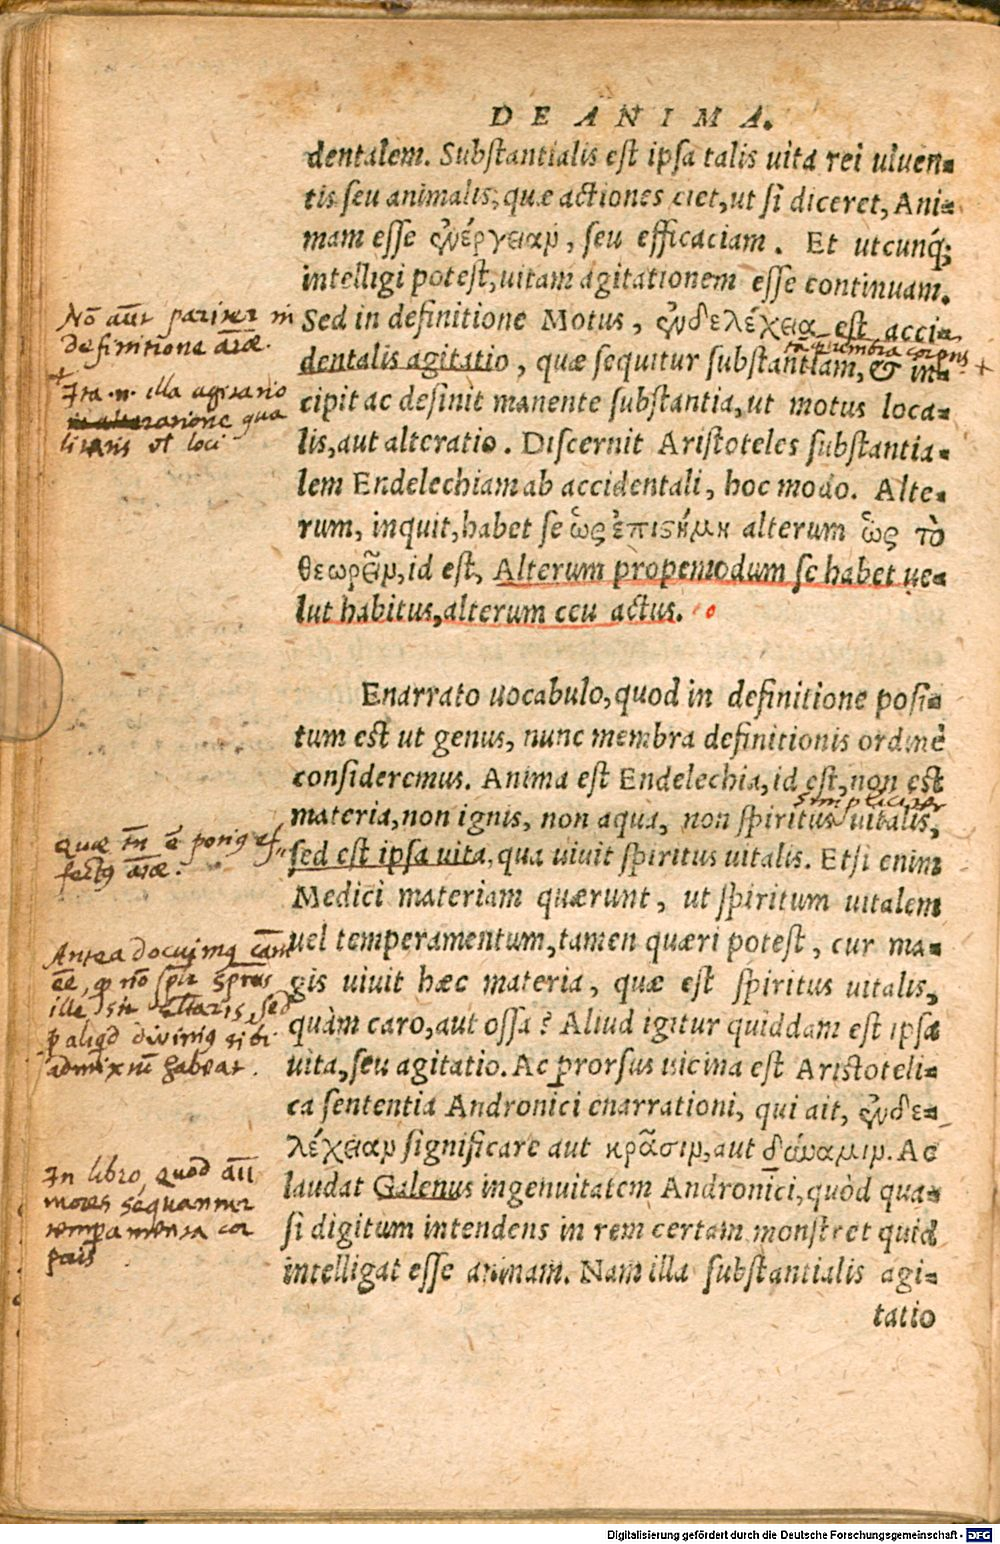 DE ANIMA.
dentalem. Substantialis est ipsa talis uita rei uiuen-
tis seu animalis, quæ actiones ciet, ut si diceret, Ani-
mam esse ἐνέργειαν, seu efficaciam. Et utcunq;
intelligi potest, uitam agitationem esse continuam.
Nō aūt pariter in
definitione aīæ.
Sed in definitione Motus, ἐνδελέχεια est acci-
tāquam umbra corporis +
dentalis agitatio, quæ sequitur substantiam, & in-
+
Ita .n. illa agitatio
ratione qua
litatis et loci
cipit ac desinit manente substantia, ut motus loca-
lis, aut alteratio. Discernit Aristoteles substantia-
lem Endelechiam ab accidentali, hoc modo. Alte-
rum, inquit, habet se ὡς ἐπιστήμη alterum ὡς τὸ
θεωρεῖν, id est, Alterum propemodum se habet ue-
lut habitus, alterum ceu actus.
Enarrato uocabulo, quod in definitione posi-
tum est ut genus, nunc membra definitionis ordinē
consideremus. Anima est Endelechia, id est, non est
simpliciter
materia, non ignis, non aqua, non spiritus uitalis,
Quæ tn̄ ē potiꝰ ef
fectꝰ aīæ.
sed est ipsa uita, qua uiuit spiritus uitalis. Etsi enim
Medici materiam quærunt, ut spiritum uitalem
uel temperamentum, tamen quæri potest, cur ma-
gis uiuit hæc materia, quæ est spiritus uitalis,
Antea docuimꝰ cām
ēē, nō
ille sit sed
aliqd diviniꝰ sibi
admixtū habeat.
quàm caro, aut ossa? Aliud igitur quiddam est ipsa
uita, seu agitatio. Ac prorsus uicina est Aristoteli-
ca sententia Andronici enarrationi, qui ait, ἐνδε-
λέχειαν significare aut κρᾶσιν, aut δύναμιν. Ac
In libro, quod aīi
mores sequantur
temperamenta cor
poris
laudat Galenus ingenuitatem Andronici, quòd qua-
si digitum intendens in rem certam monstret quid
intelligat esse animam. Nam illa substantialis agi-
tatio
Digitalisierung gefördert durch die Deutsche Forschungsgemeinschaft - DFG